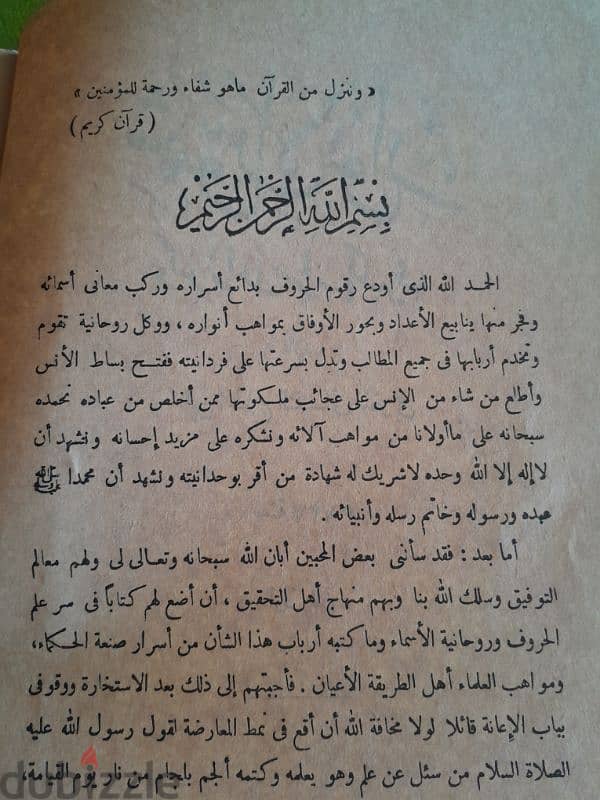 « وننزل من القرآن ماهو شفاء ورحمة للمؤمنين »
( قرآن كريم )
بسم الله الرحمن الرحيم
الحمد الله الذى أودع رقوم الحروف بدائع أسراره وركب معانى أسمائه
وفجر منها ينابيع الأعداد وبحور الأوفاق بمواهب أنواره ، ووكل روحانية تقوم
وتخدم أربابها فى جميع المطالب وتدل بسرعتها على فردانيته ففتح بساط الأنس
وأطلع من شاء من الإنس على عجائب ملكوتها ممن أخلص من عباده نحمده
سبحانه على ماأولانا من مواهب آلائه ونشكره على مزيد إحسانه ونشهد أن
لاإله إلا الله وحده لاشريك له شهادة من أقر بوحدانيته ونشهد أن محمدا ﷺ
عبده ورسوله وخاتم رسله وأنبيائه .
أما بعد : فقد سألنى بعض المحبين أبان الله سبحانه وتعالى لى ولهم معالم
التوفيق وسلك الله بنا وبهم منهاج أهل التحقيق ، أن أضع لهم كتاباً فى سر علم
الحروف وروحانية الأسماء وما كتبه أرباب هذا الشأن من أسرار صنعة الحكماء،
ومواهب العلماء أهل الطريقة الأعيان . فأجبتهم إلى ذلك بعد الاستخارة ووقوفى
بباب الإعانة قائلا لولا مخافة الله أن أقع فى نمط المعارضة لقول رسول الله عليه
الصلاة السلام من سئل عن علم وهو يعلمه وكتمه ألجم بلجام من نار يوم القيامة،
dubizzle